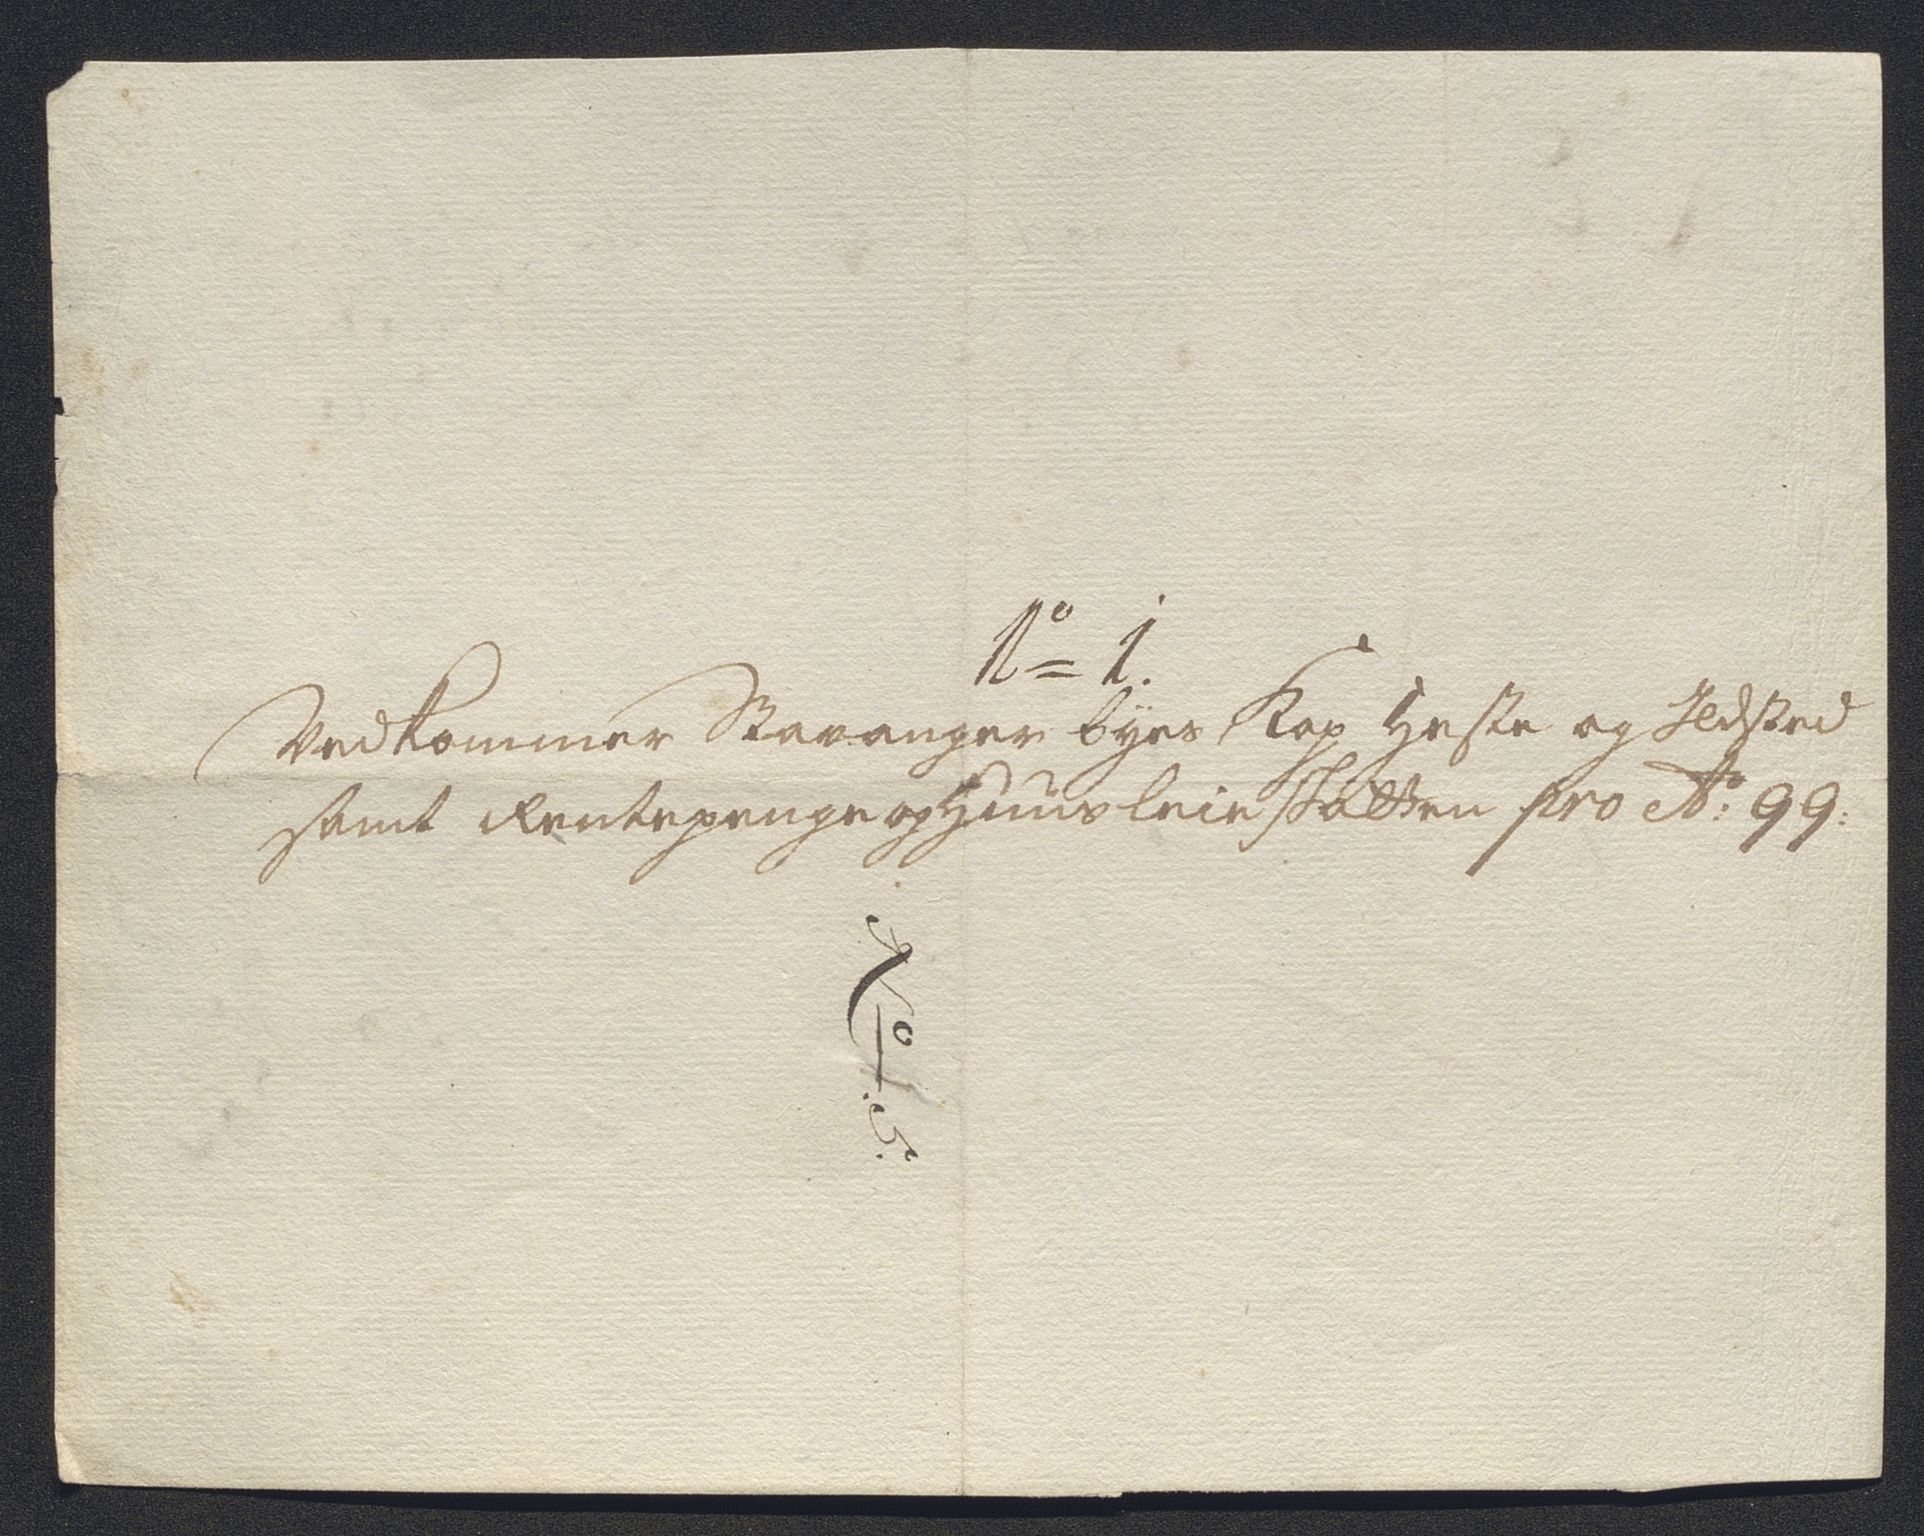 No 1.
Vedkommer Stavanger byes Kop Heste og Ildsted
samt Rentepenge og Huusleie skatten pro Ao: 99:
No. 5.